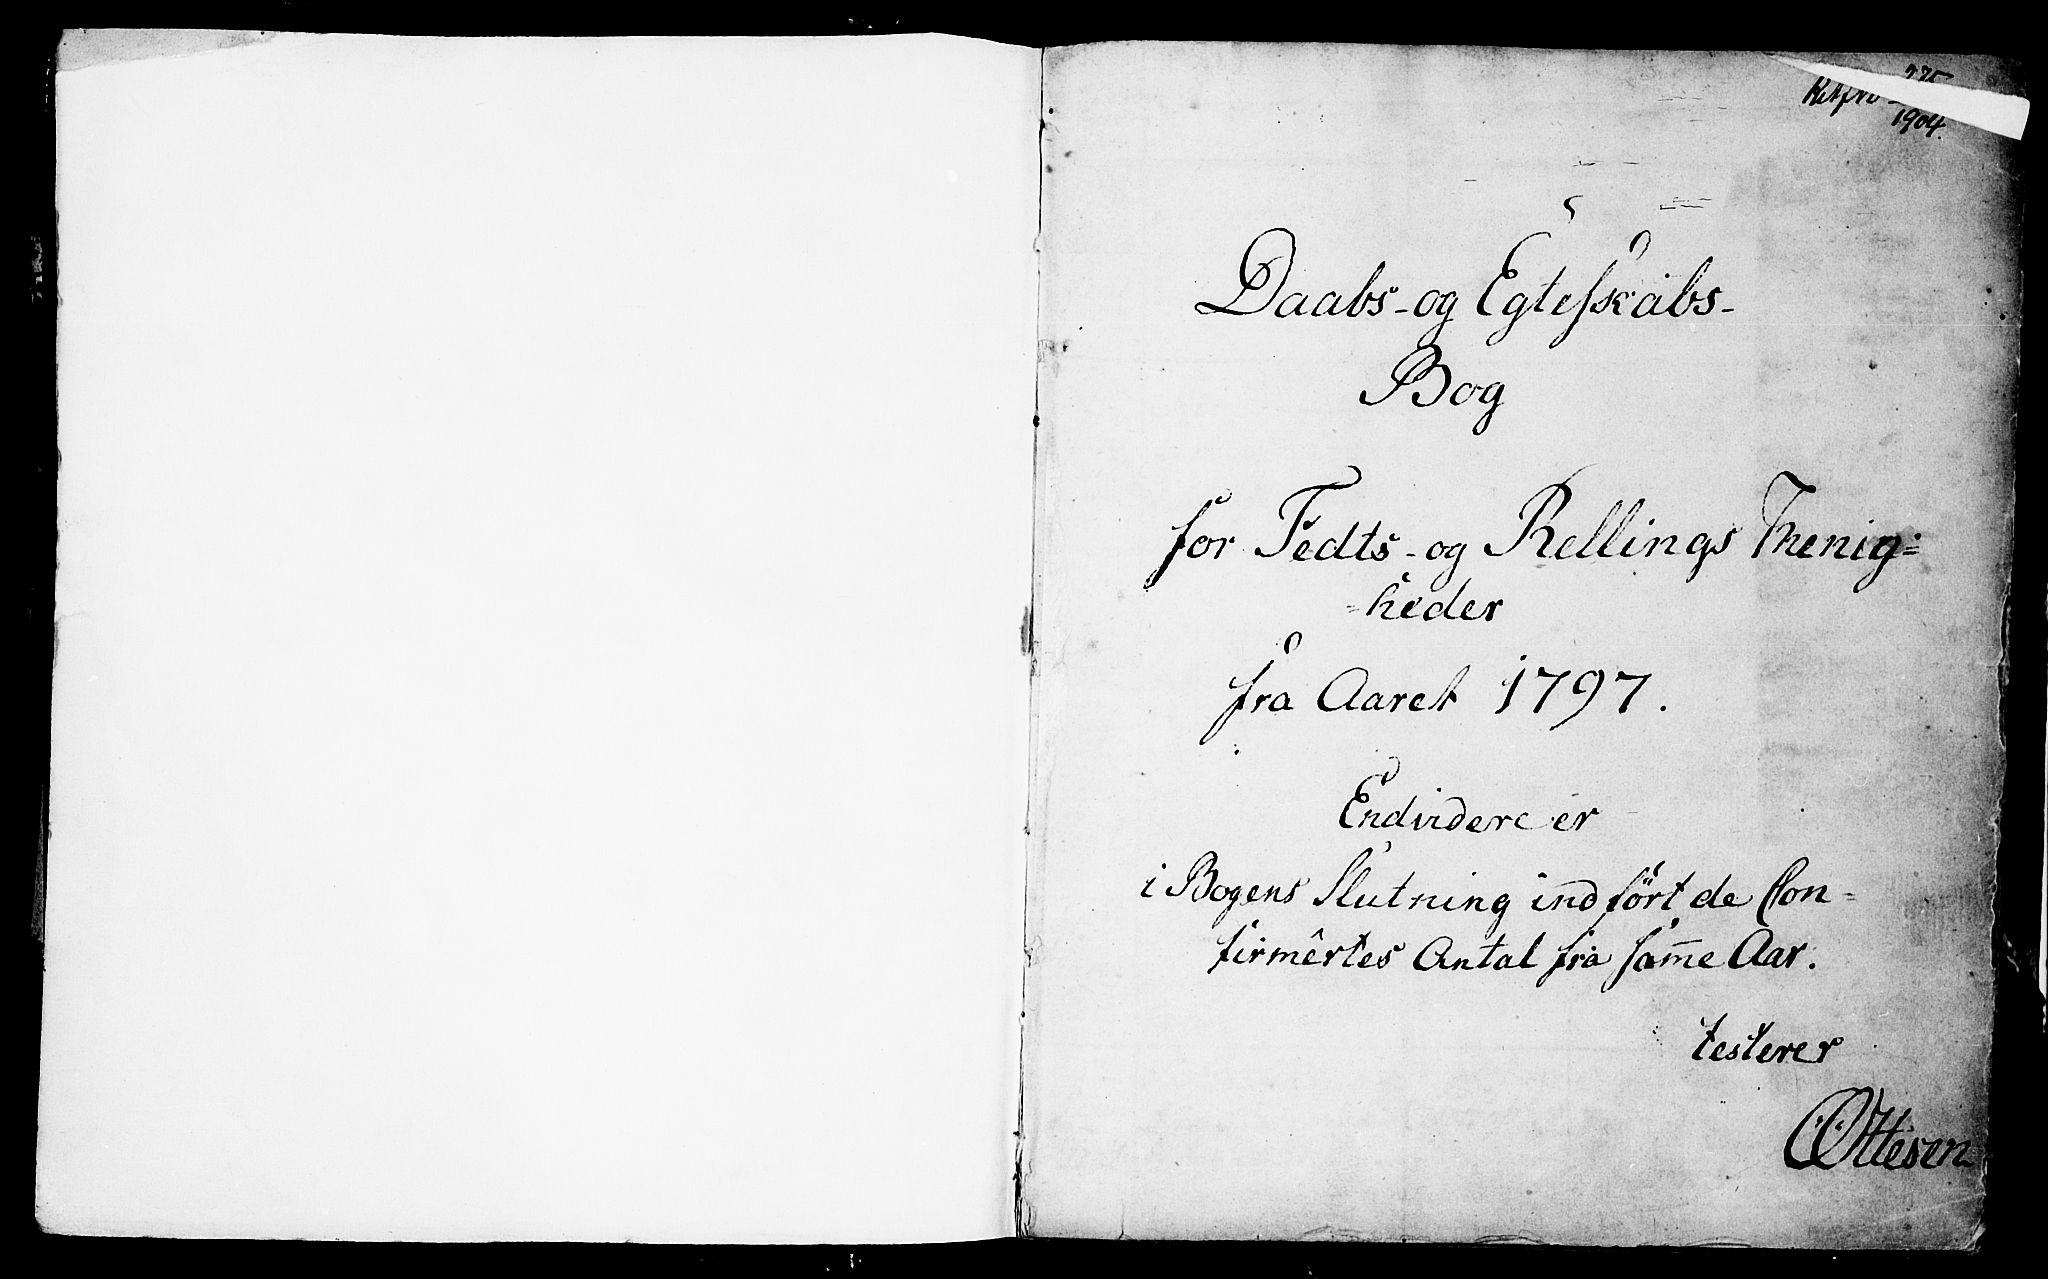 1904.
Daabs- og Egteskabs-
Bog
for Tedts- og Rellings Menig=
=heder
fra Aaret 1797.
Endvidere er
i Bogens Slutning indført de Con=
firmêrtes Antal fra sam̄e Aar.
testerer
COttesen